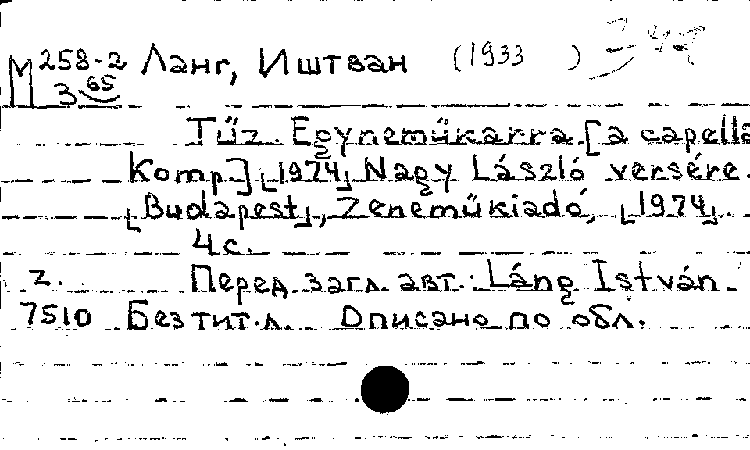 М 258-2 Ланг, Иштван (1933 )
3 65
Tűz. Egyneműkarra [a capella
Komp] [1974] Nagy László versére.
[Budapest], Zeneműkiadó, [1974].
4 с.
z. Перед загл. авт.: Láng István.
7510 Без тит. л. Описано по обл.